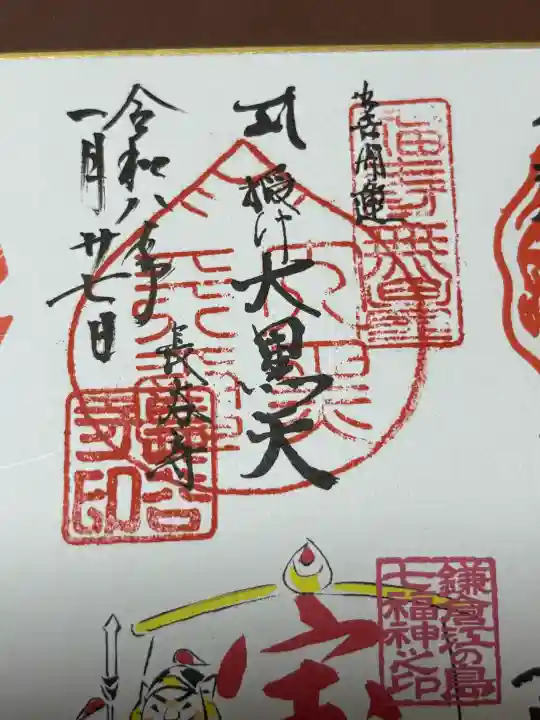 開運
授け大黒天
長谷寺
令和八年
一月廿七日
福寿無量
長谷寺印
鎌倉江の島
七福神之印
宝